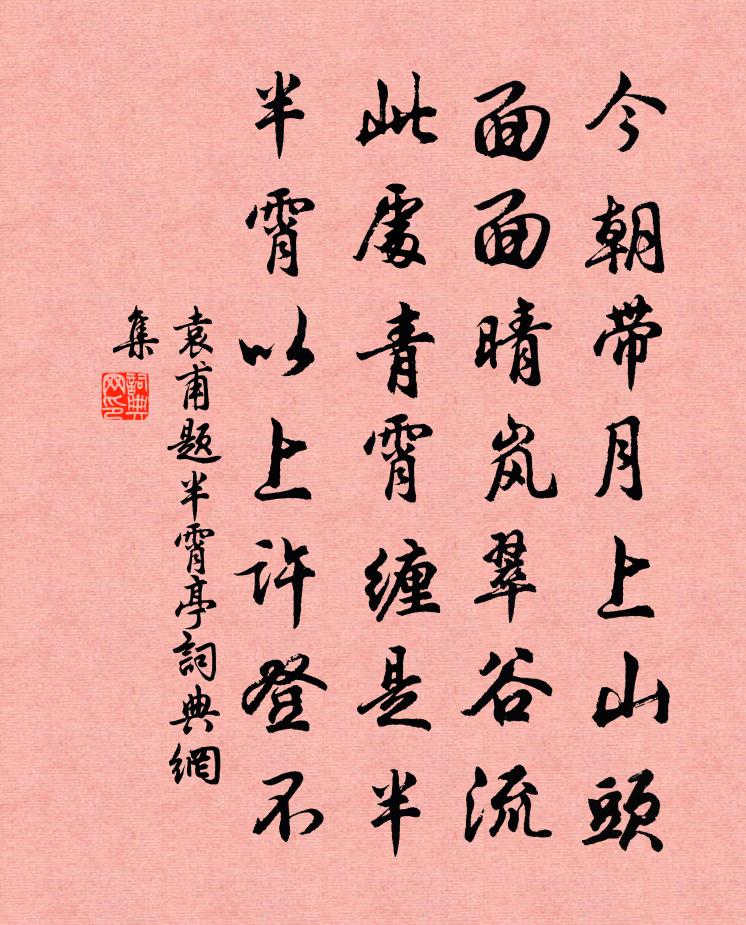 今朝带月上山頭
面面晴岚翠谷流
此處青霄缠是半
半霄以上许登不
袁甫题半霄亭詞典網
集
詞典网印